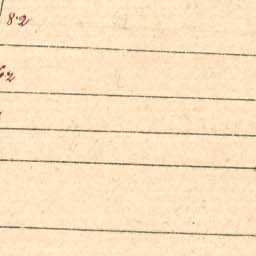 82
62